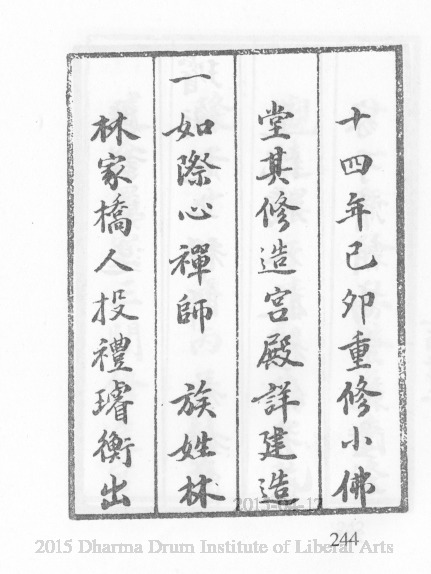 十四年己卯重修小佛
堂其修造宮殿詳建造
一如際心禪師 族姓林
林家橋人投禮璿衡出
2015-04-17
244
2015 Dharma Drum Institute of Liberal Arts